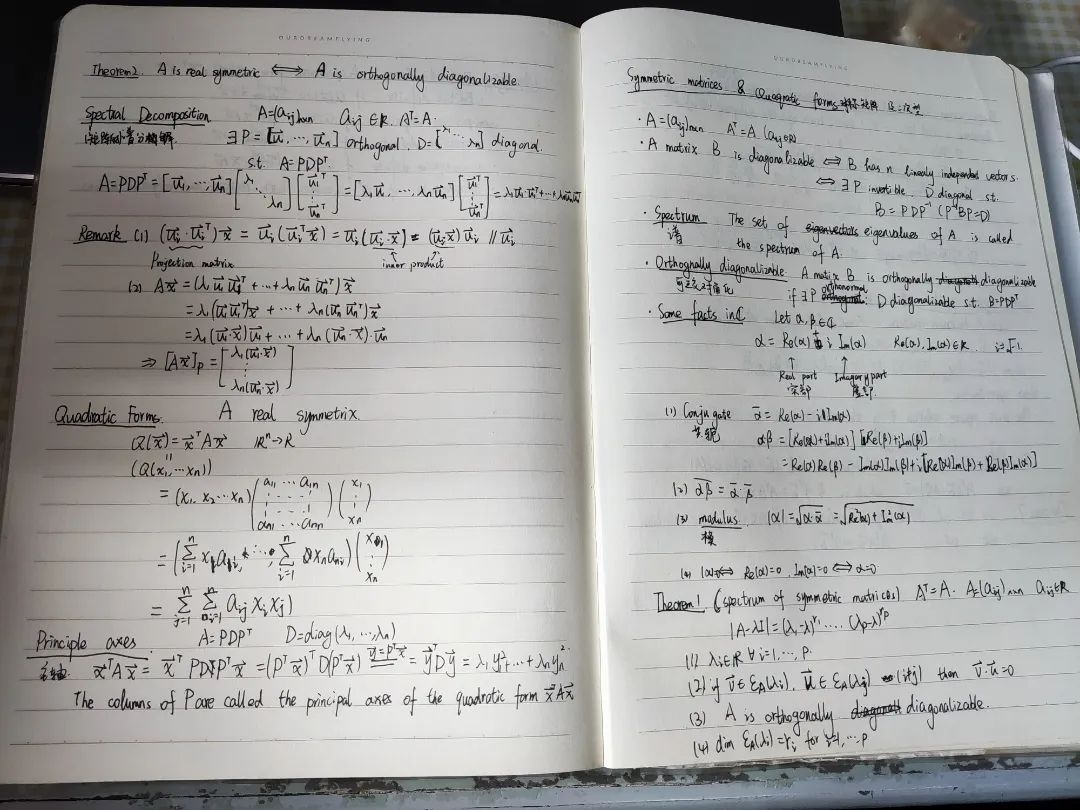 OURDREAMFLYING
Theorem 2. A is real symmetric ⟺ A is orthogonally diagonalizable.
Spectral Decomposition A=(aij)n×n aij∈R. Aᵀ=A.
∃P=[u⃗₁, ⋯, u⃗n] orthogonal, D=[λ₁ ⋱ λn] diagonal.
s.t. A=PDPᵀ.
A=PDPᵀ=[u⃗₁,⋯,u⃗n][λ₁ ⋱ λn][u⃗₁ᵀ ⋮ u⃗nᵀ]=[λ₁u⃗₁, ⋯, λnu⃗n][u⃗₁ᵀ ⋮ u⃗nᵀ]=λ₁u⃗₁u⃗₁ᵀ+⋯+λnu⃗nu⃗nᵀ
Remark (1) (u⃗i·u⃗iᵀ)x⃗ = u⃗i(u⃗iᵀx⃗)=u⃗i(u⃗i·x⃗) = (u⃗i·x⃗)u⃗i // u⃗i
Projection matrix inner product
(2) Ax⃗=(λ₁u⃗₁u⃗₁ᵀ+⋯+λnu⃗nu⃗nᵀ)x⃗
=λ₁(u⃗₁u⃗₁ᵀ)x⃗+⋯+λn(u⃗nu⃗nᵀ)x⃗
=λ₁(u⃗₁·x⃗)u⃗₁+⋯+λn(u⃗n·x⃗)·u⃗n
⇒ [Ax⃗]P=[λ₁(u⃗₁·x⃗) ⋮ λn(u⃗n·x⃗)]
Quadratic Forms. A real symmetrix.
Q(x⃗)=x⃗ᵀAx⃗ Rⁿ→R
(Q(x₁,⋯xn))
=(x₁, x₂⋯xn)(a₁₁ ⋯ a₁n ⋮ an₁ ⋯ ann)(x₁ ⋮ xn)
=(∑ⁿᵢ₌₁ xiai₁, ⋯, ∑ⁿᵢ₌₁ xnani)(x₁ ⋮ xn)
= ∑ⁿⱼ₌₁ ∑ⁿᵢ₌₁ aijxixj)
Principle axes. A=PDPᵀ D=diag(λ₁,⋯,λn)
x⃗ᵀAx⃗ = x⃗ᵀPDPᵀx⃗=(Pᵀx⃗)ᵀD(Pᵀx⃗) y⃗=Pᵀx⃗ = y⃗ᵀDy⃗=λ₁y₁²+⋯+λnyn².
The columns of P are called the principal axes of the quadratic form x⃗ᵀAx⃗
OURDREAMFLYING
Symmetric matrices & Quaqratic forms 对称矩阵 & 二次型
· A=(aij)n×n Aᵀ=A (aij∈R)
· A matrix B is diagonalizable ⟺ B has n linearly independent vectors.
⟺ ∃P invertible, D diagonal s.t.
B=PDP⁻¹ (P⁻¹BP=D)
· Spectrum The set of eigenvectors eigenvalues of A is called
谱 the spectrum of A.
· Orthognally diagonalizable. A matix B is orthogonally diagonalizable
if ∃P orthonormal, D diagonalizable s.t. B=PDPᵀ
· Some facts in C Let α,β∈C
α=Re(α)+i Im(α) Re(α),Im(α)∈R. i=√-1.
Real part Imagary part
实部 虚部.
(1) Conjugate ᾱ=Re(α)-iIm(α)
共轭 αβ=[Re(α)+iIm(α)][Re(β)+iIm(β)]
=Re(α)Re(β)-Im(α)Im(β)+i[Re(α)Im(β)+Re(β)Im(α)]
(2) \overline{αβ}=ᾱ·β̄
(3) modulus. |α|=√(α·ᾱ) =√(Re²(α)+Im²(α))
模
(4) |α|=0⟺ Re(α)=0, Im(α)=0⟺α=0
Theorem 1 (spectrum of symmetric matrices) Aᵀ=A. A=(aij)n×n aij∈R
|A-λI|=(λ₁-λ)^γ₁ ⋯ (λp-λ)^γp
(1) λi∈R ∀i=1,⋯,p.
(2) if v⃗∈ℰA(λi), u⃗∈ℰA(λj) (i≠j) then v⃗·u⃗=0
(3) A is orthogonally diagonalizable.
(4) dim ℰA(λi)=γi for i=1,⋯,p